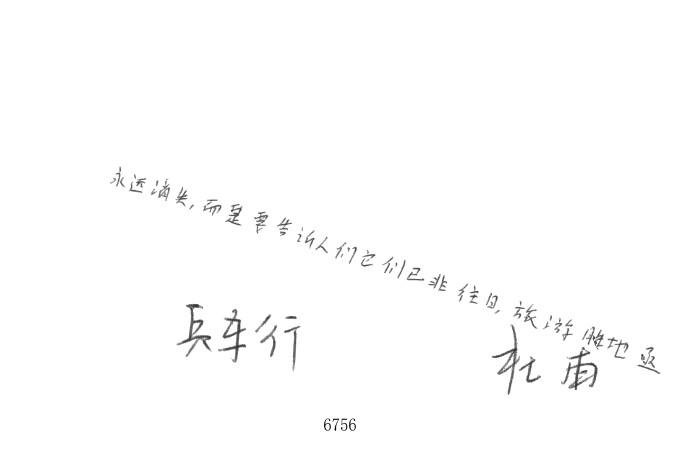 永远消失,而是要告诉人们它们已非往日,旅游胜地亟
兵车行
杜甫
6756